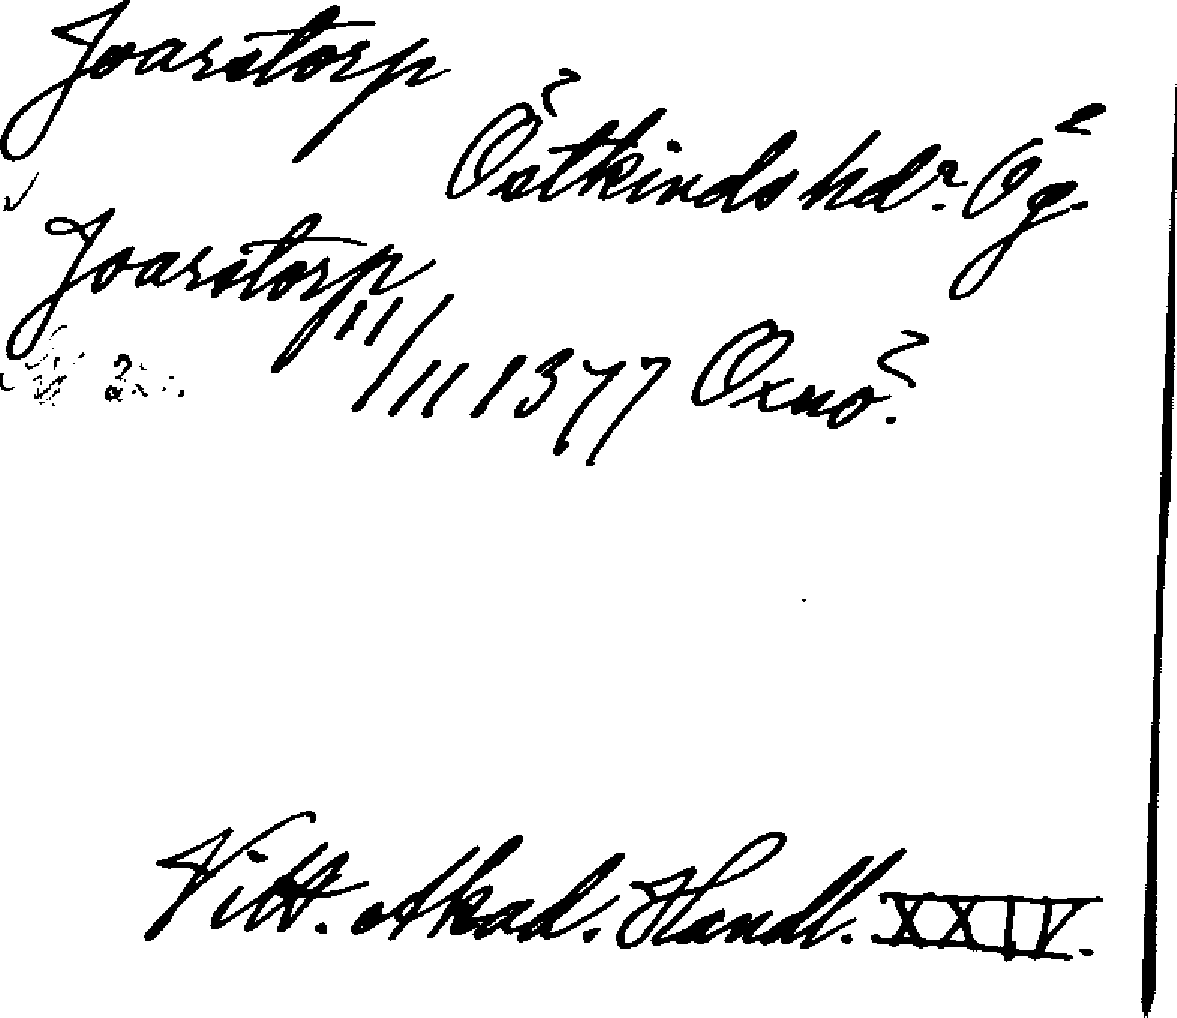 Joarstorp
Östkinds hdr. Ög.
Joarstorp
11/11 1377 Oxnö.
Vitt. Akad. Handl. XXIV.